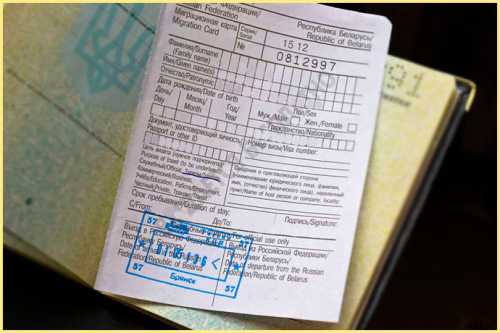 Федерация/
an Federation
Республика Беларусь/
Republic of Belarus
Миграционная карта
Migration Card
Серия/
Serial
15 12
№ 0812997
Фамилия/Surname
(Family name)
Имя/Given name(s)
Отчество/Patronymic
Дата рождения/Date of birth
Пол/Sex
День/ Месяц/ Год/
Day Month Year
Муж./Male Жен./Female
Гражданство/Nationality
Документ, удостоверяющий личность/
Passport or other ID
Номер визы/Visa number:
Цель визита (нужное подчеркнуть)/
Purpose of travel (to be underlined):
Служебный/Official, Туризм/Tourism,
Коммерческий/Business,
Учёба/Education, Работа/Employment,
Частный/Private, Транзит/Transit
Сведения о приглашающей стороне
(наименование юридического лица, фамилия,
имя, (отчество) физического лица), населенный
пункт/Name of host person or company, locality:
Срок пребывания/Duration of stay:
Подпись/Signature:
С/From: До/To:
official use only
57
Въезд в Российскую Федерацию/
Республику Беларусь/
Date of
Federation/Republic of Belarus
Выезд из Российской Федерации/
Республики Беларусь/
Date of departure from the Russian
Federation/Republic of Belarus
57 57
Брянск